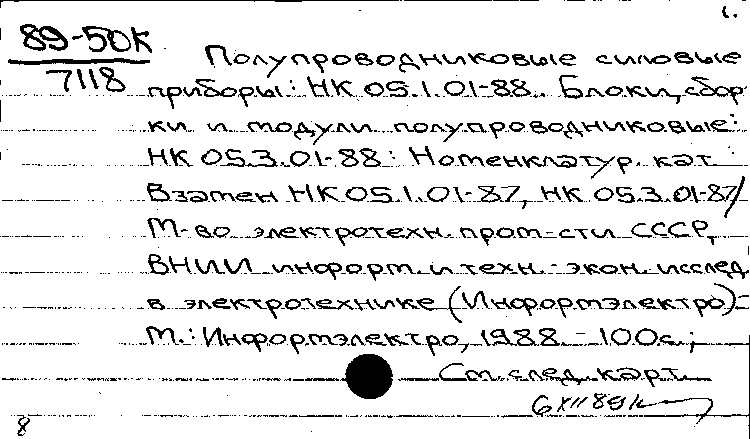 1.
89-50К
7118
Полупроводниковые силовые
приборы: НК 05.1.01-88. Блоки, сбор
ки и модули полупроводниковые:
НК 05.3.01-88: Номенклатур. кат.
Взамен НК 05.1.01-87, НК 05.3.01-87/
М-во электротехн. пром-сти СССР,
ВНИИ информ. и техн.-экон. исслед.
в электротехнике (Информэлектро)-
М.: Информэлектро, 1988.-100с.;
См. след. карт.
6 XII 89
8